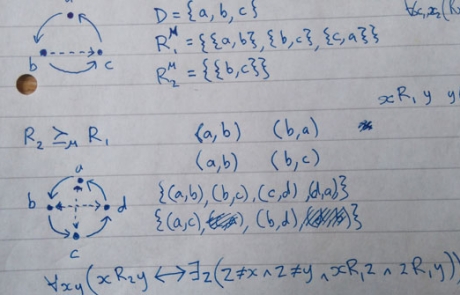 a
D = {a, b, c}
∀x₁x₂(R₂
R₁ᴹ = {{a,b}, {b,c}, {c,a}}
b c
R₂ᴹ = {{b,c}}
xR₁y
R₂ ≥ᴹ R₁ (a,b) (b,a)
(a,b) (b,c)
a
b d
c
{(a,b), (b,c), (c,d), (d,a)}
{(a,c), (b,d)
∀xy(xR₂y ⟷ ∃z(z≠x ∧ z≠y ∧ xR₁z ∧ zR₁y))